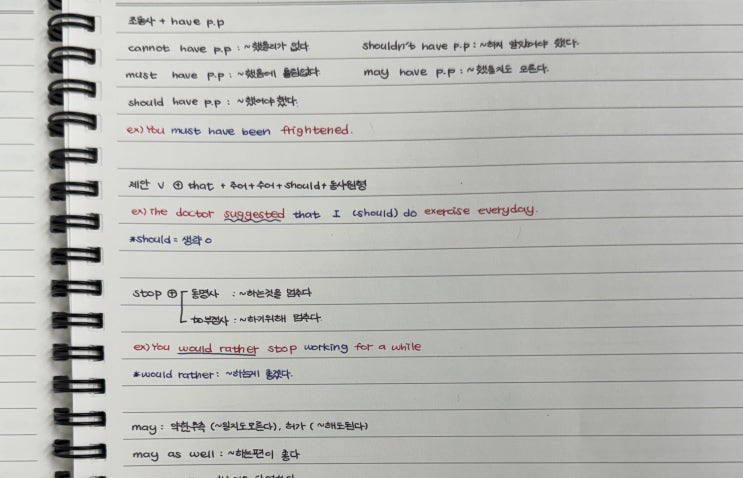 조동사 + have p.p
cannot have p.p : ~했을리가 없다 shouldn't have p.p : ~하지 말았어야 했다.
must have p.p : ~했음에 틀림없다 may have p.p : ~했을지도 모른다.
should have p.p : ~했어야 했다.
ex) You must have been frightened.
제안 V ⊕ that + 주어 + 수어 + should + 동사원형
ex) The doctor suggested that I (should) do exercise everyday.
*should = 생략 o
stop ⊕ 동명사 : ~하는것을 멈추다
to부정사 : ~하기위해 멈추다.
ex) You would rather stop working for a while
*would rather : ~하는게 좋겠다.
may : 약한추측 (~일지도모른다), 허가 (~해도된다)
may as well : ~하는편이 좋다